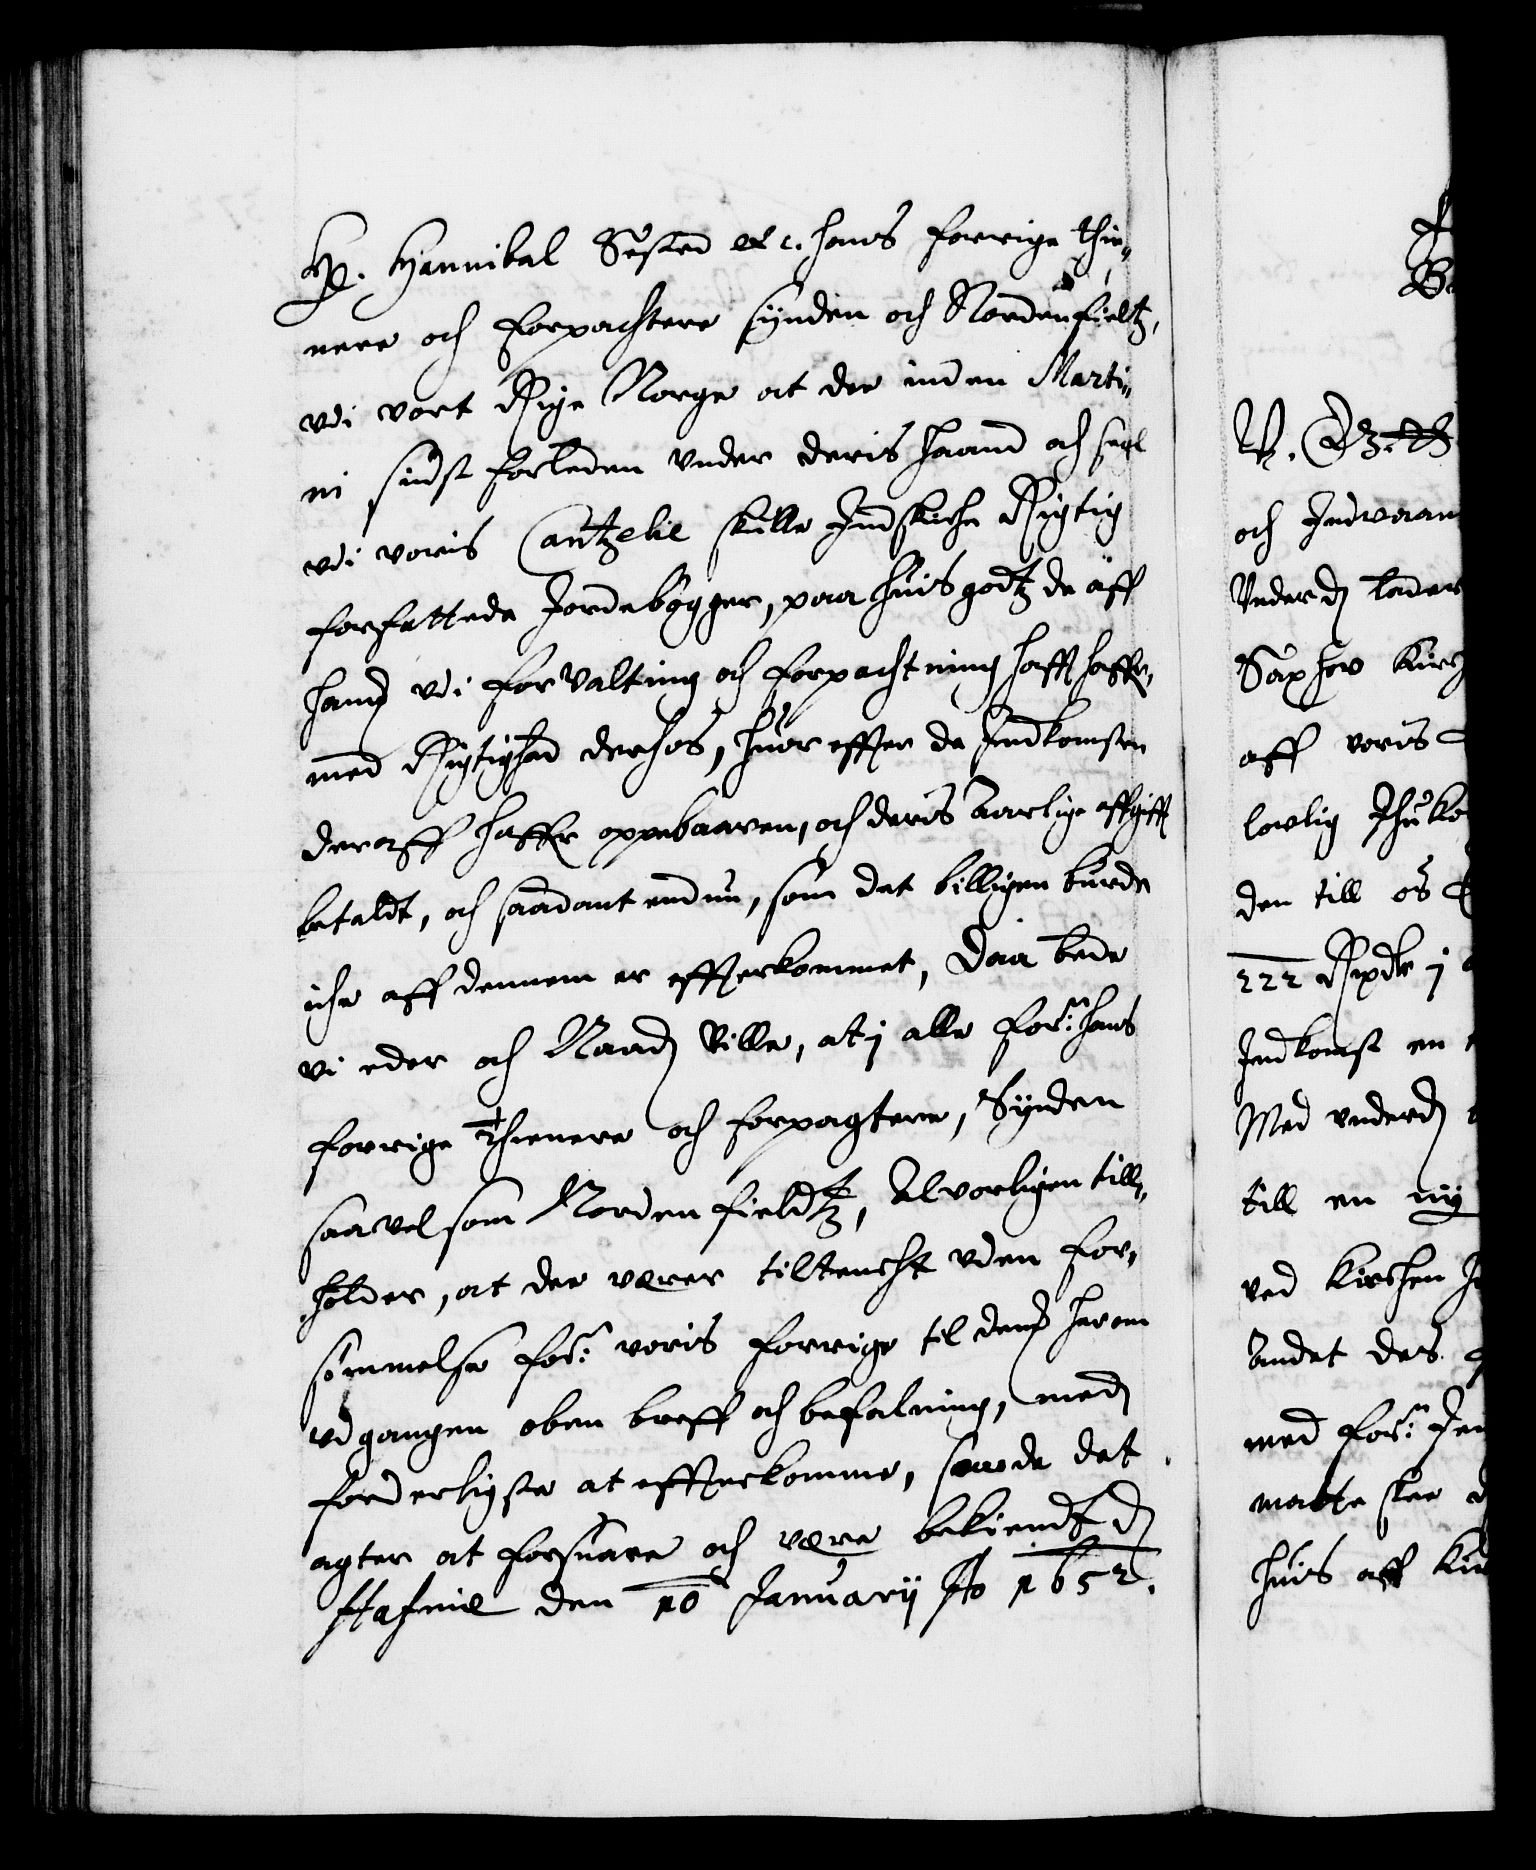 Hr. Hannibal Sested etc. hans forrige thie„
nere och forpachtere synden och Nordenfieltz,
vdi vort Rige Norge at de inden Marti„
ni sidst forleden vnder deris haand och segl
vdi voris Cantzelie skulle Indskiche Rigtig
forfattede Jordebøgger, paa huis godtz de aff
ham vdi forvalting och forpachtning hafft haffr,
med Rigtighed derhos, huor effter de Indkomsten
deraff haffr oppebaaren, och deris Aarlige affgifft
betaldt, och saadant endnu, som det billigen burde
iche aff dennem er effterkommet, Daa bede
vi eder och Naadj Ville, at j alle forne: hans
forrige Thienere och forpagtere, Synden
saavelsom Nordenfieldtz, Alvorligen till„
holder, at de verer tiltencht vden for„
sømmelse forne: voris forrige til dend herom
vdgangen oben breff och befalning, med
forderligste at effterkomme, saa de det
agter at forsuare och være bekiendt Dj
Hafniæ den 10 Januarij Ao 1652.
och Indvaan
Vederdj lader
Saxhov Kirch
aff voris
lovlig Thuko
den till os
222 Rixdlr j
Indkomst en
Med vnderdj
till en ny
ved Kirchen
Andet des
med forne:
matte skee
huis aff Kir